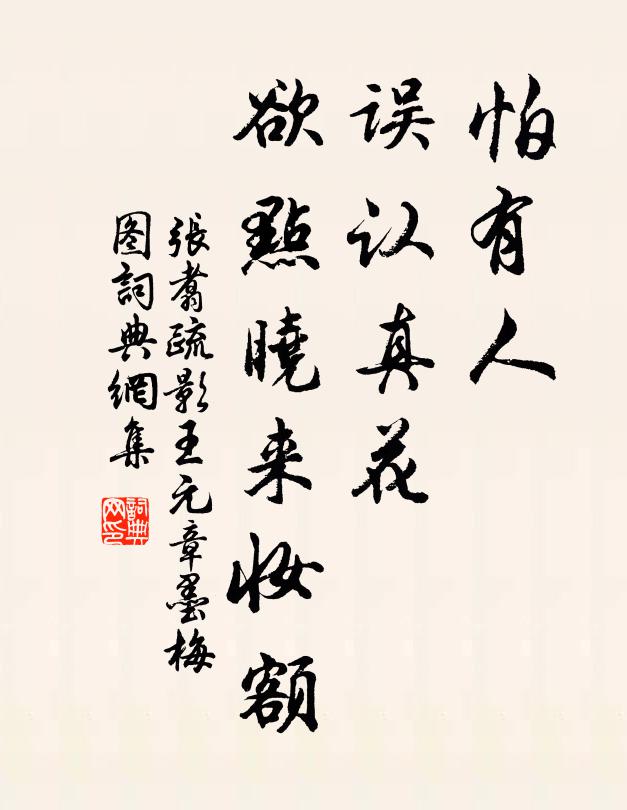 怕有人
误认真花
欲點曉来妆额
張翥疏影王元章墨梅
图詞典網集
詞典网印